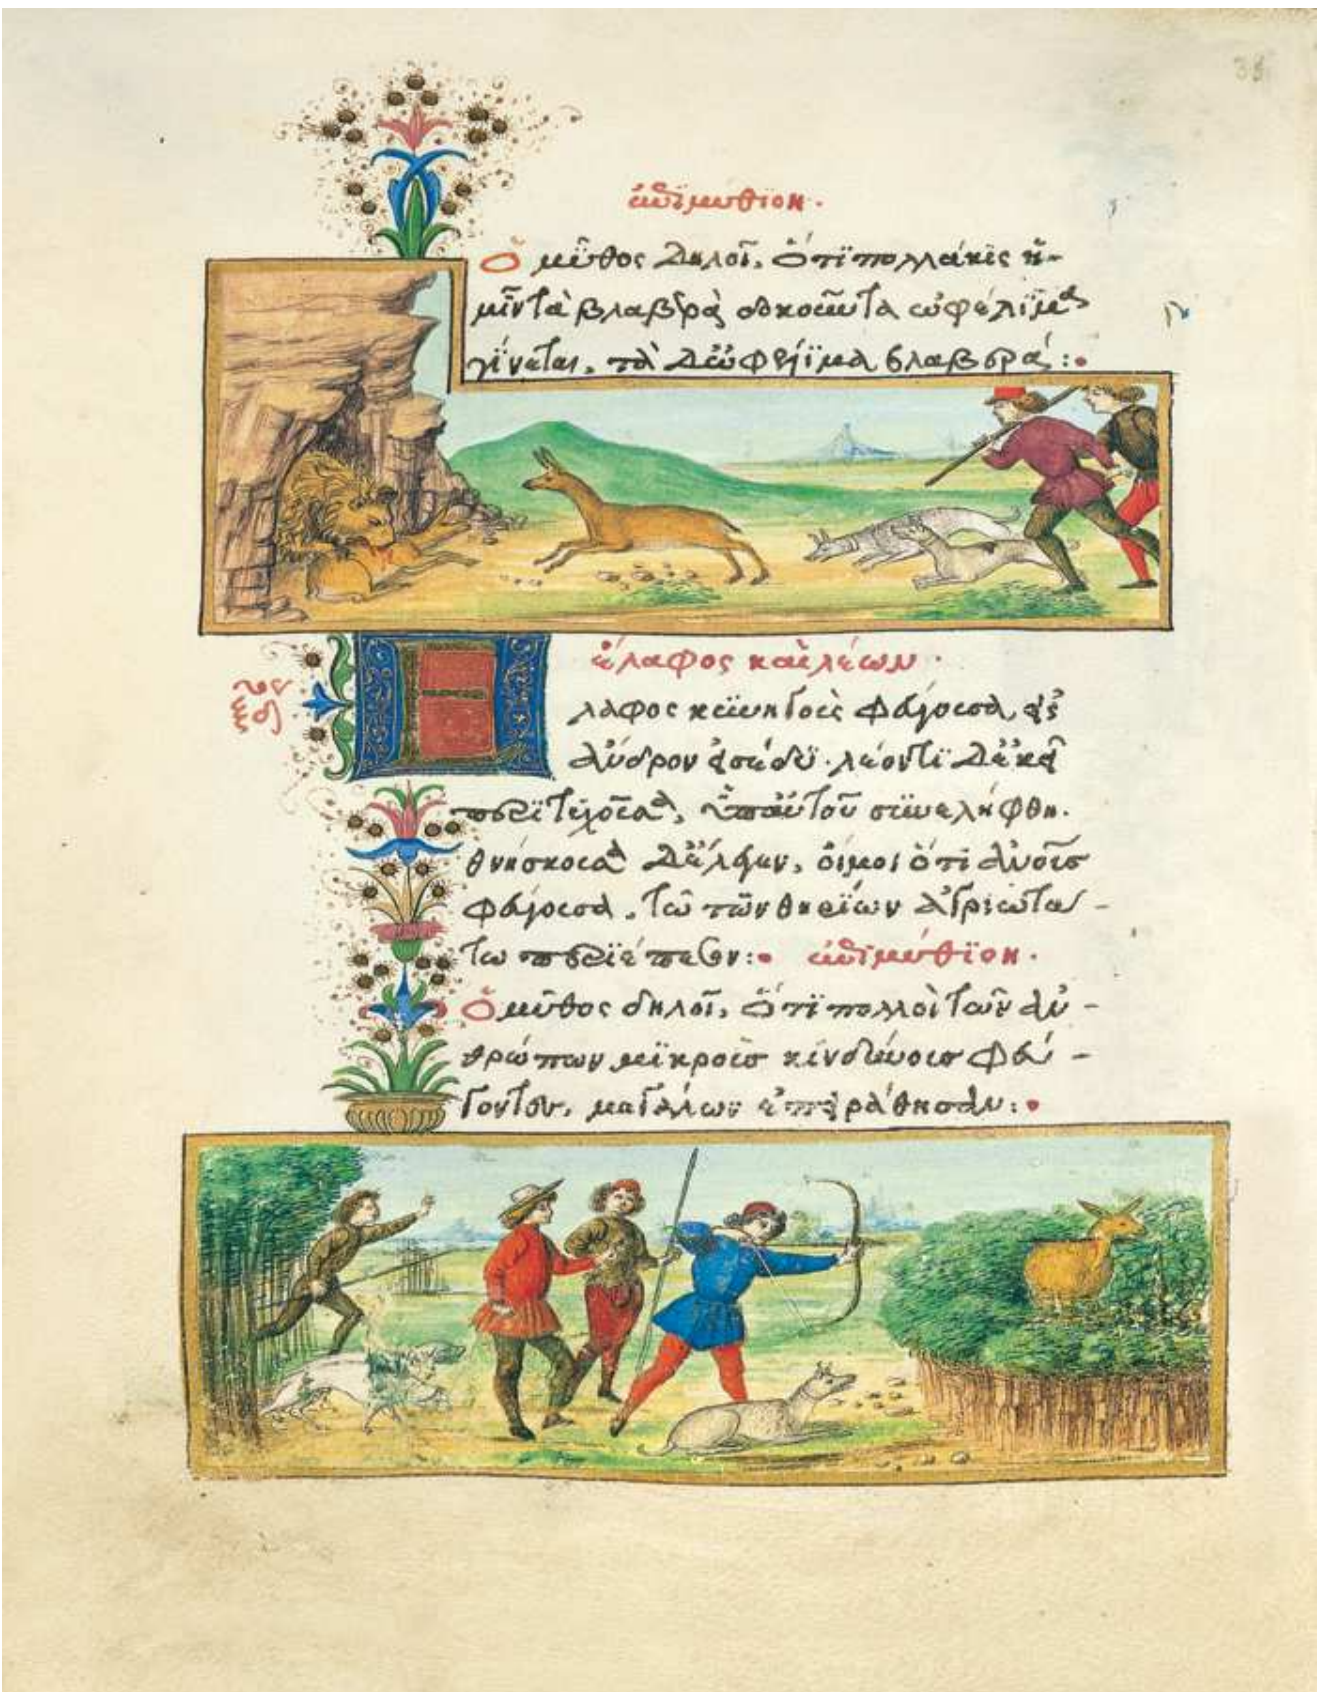 ἐπιμύθιον.
Ὁ μῦθος δηλοῖ, ὅτι πολλάκις ἡ-
μῖν τὰ βλαβερὰ δοκοῦντα ὠφέλιμα
γίνεται, τὰ δ' ὠφέλιμα βλαβερά:
ἔλαφος καὶ λέων.
Ἔλαφος κυνηγοὺς φεύγουσα, εἰς
ἄντρον εἰσέδυ. λέοντι δ' ἐκεῖ
περιτυχοῦσα, ὑπ' αὐτοῦ συνελήφθη.
θνήσκουσα δ' ἔλεγεν, οἴμοι ὅτι ἀνους
φεύγουσα, τῷ τῶν θηρίων ἀγριωτά-
τῳ περιέπεσον: ἐπιμύθιον.
Ὁ μῦθος δηλοῖ, ὅτι πολλοὶ τῶν ἀν-
θρώπων μικροὺς κινδύνους φεύ-
γοντες, μεγάλων ἐπειράθησαν: